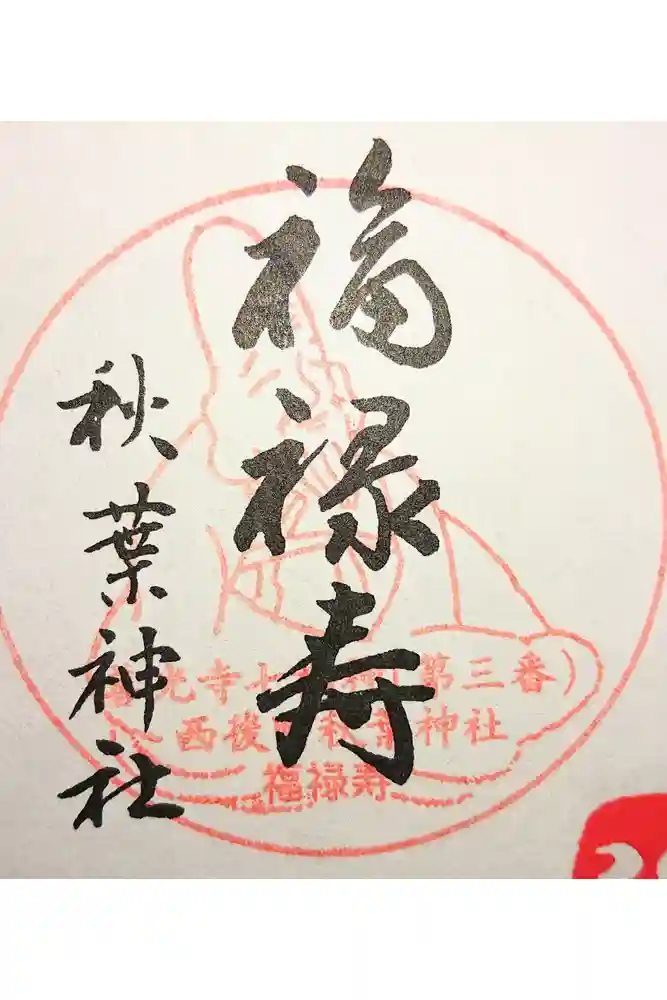 福禄寿
秋葉神社
光寺七 (第三番)
西後 秋葉神社
福禄寿